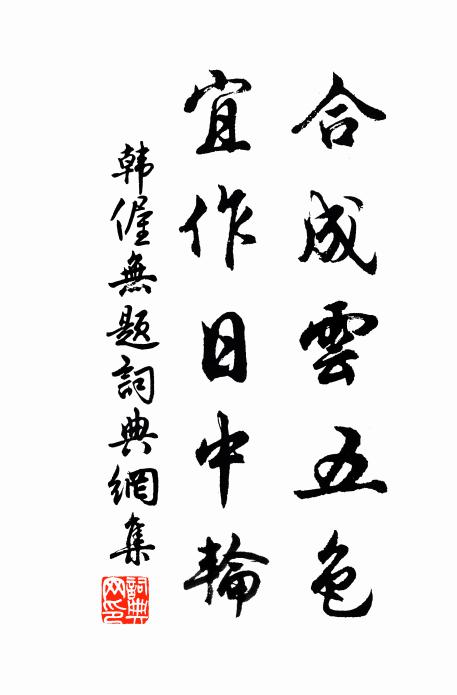 合成雲五色
宜作日中輪
韩偓無題詞典網集
詞典網印